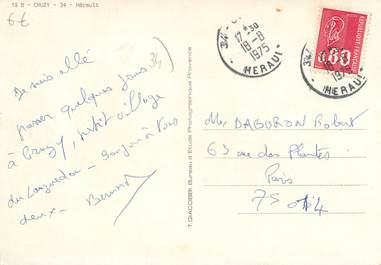 19 B - CRUZY - 34 - Hérault
6€
34)
Je suis allé
passer quelques jours
à Cruzy, petit village
du Languedoc - Bonjour à Vous
deux -
T. GIACOBBI Bureau d'Etude Photographique Provence
17-30
18-8
1975
HERAUL
REPUBLIQUE FRANCAISE
0,80
1975
HERAUL
DABURON Robert
63 rue des Plantes
Paris
75014